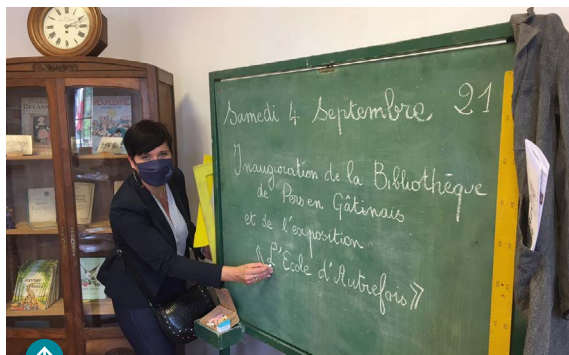 Samedi 4 Septembre 21
Inauguration de la Bibliothèque
de Pers en Gâtinais
et de l'exposition
« L'Ecole d'Autrefois »